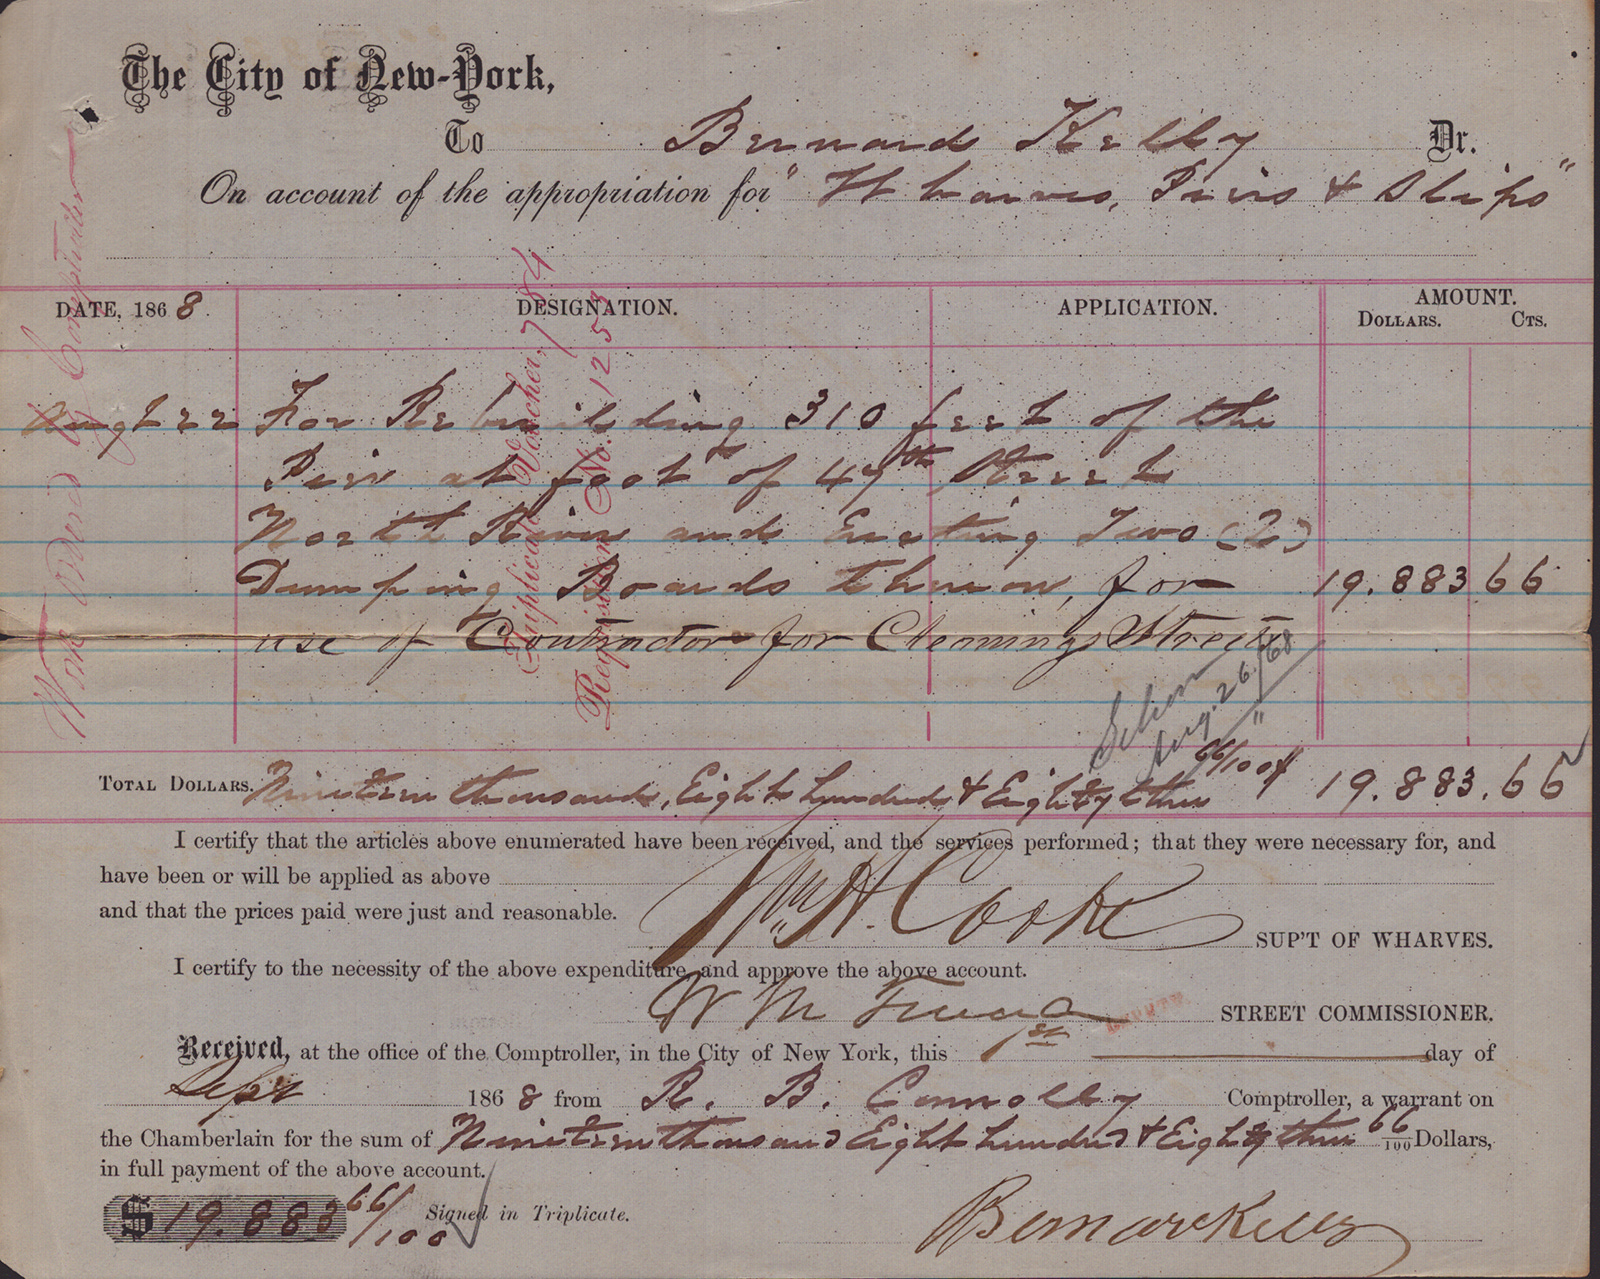 The City of New-York,
To Bernard Kelly Dr.
On account of the appropriation for "Wharves, Piers & Slips"
DATE, 1868. DESIGNATION. APPLICATION. AMOUNT.
DOLLARS. CTS.
Augt 22 For Rebuilding 310 feet of the
Pier at foot of 47th Street
North River and Erecting Two (2)
Dumping Boards thereon, for 19.883 66
use of Contractor for Cleaning Streets
Work Ordered by Comptroller
Triplicate Voucher, 784
Requisition No. 1253
Aug. 26/68
TOTAL DOLLARS. Nineteen thousand, Eight hundred & Eighty three 66/100 19.883.66
I certify that the articles above enumerated have been received, and the services performed; that they were necessary for, and
have been or will be applied as above
and that the prices paid were just and reasonable.
Wm. H. Cooke SUP'T OF WHARVES.
I certify to the necessity of the above expenditure, and approve the above account.
DEPUTY STREET COMMISSIONER.
Received, at the office of the Comptroller, in the City of New York, this 1st day of
Sept 1868 from R. B. Connolly Comptroller, a warrant on
the Chamberlain for the sum of Nineteen thousand Eight hundred & Eighty three 66/100 Dollars,
in full payment of the above account.
$19.883 66/100 Signed in Triplicate.
Bernard Kelly